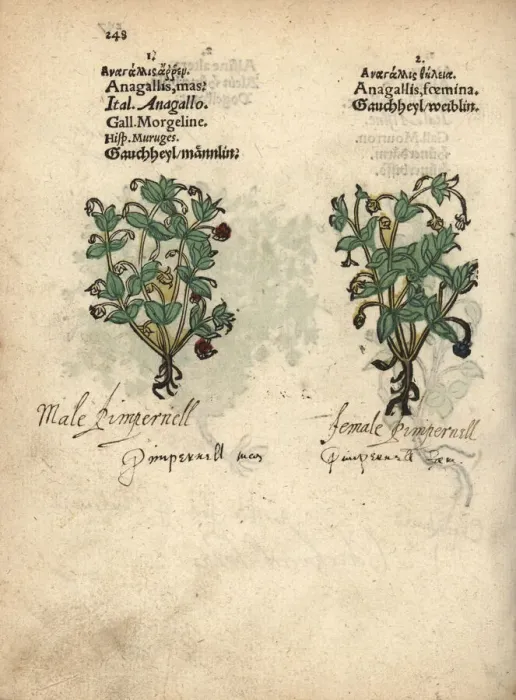 248
1.
Αναγάλλις ἄῤῥην.
Anagallis, mas:
Ital. Anagallo.
Gall. Morgeline.
Hisp. Muruges.
Gauchheyl/männlin:
2.
Αναγάλλις θήλεια.
Anagallis, fœmina.
Gauchheyl/weiblin.
Male Pimpernell
Pimpernell mas
female Pimpernell
Pimpernell